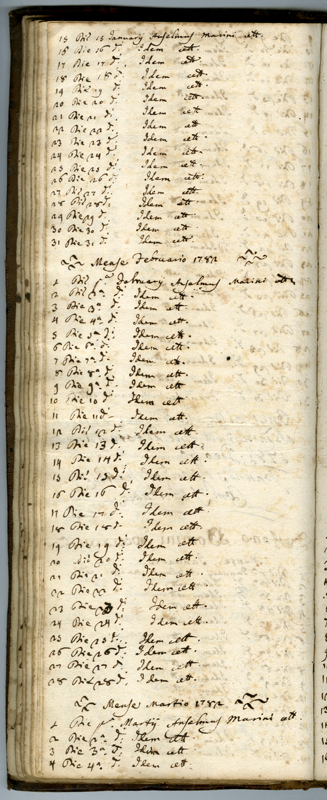 15 Die 15 January Anselmus Marini ett.
16 Die 16 d:. Idem ett.
17 Die 17 d:. Idem ett.
18 Die 18 d:. Idem ett.
19 Die 19 d:. Idem ett.
20 Die 20 d:. Idem ett.
21 Die 21 d:. Idem ett.
22 Die 22 d:. Idem ett.
23 Die 23 d:. Idem ett.
24 Die 24 d:. Idem ett.
25 Die 25 d:. Idem ett.
26 Die 26 d:. Idem ett.
27 Die 27 d:. Idem ett.
28 Die 28 d:. Idem ett.
29 Die 29 d:. Idem ett.
30 Die 30 d:. Idem ett.
31 Die 31 d:. Idem ett.
Mense Februario 1782
1 Die February Anselmus Marini ett.
2 Die 2ª d:. Idem ett.
3 Die 3ª d:. Idem ett.
4 Die 4ª d:. Idem ett.
5 Die 5ª d:. Idem ett.
6 Die 6ª d:. Idem ett.
7 Die 7ª d:. Idem ett.
8 Die 8ª d:. Idem ett.
9 Die 9ª d:. Idem ett.
10 Die 10 d:. Idem ett.
11 Die 11 d:. Idem ett.
12 Die 12 d:. Idem ett.
13 Die 13 d:. Idem ett.
14 Die 14 d:. Idem ett.
15 Die 15 d:. Idem ett.
16 Die 16 d:. Idem ett.
17 Die 17 d:. Idem ett.
18 Die 18 d:. Idem ett.
19 Die 19 d:. Idem ett.
20 Die 20 d:. Idem ett.
21 Die 21 d:. Idem ett.
22 Die 22 d:. Idem ett.
23 Die 23 d:. Idem ett.
24 Die 24 d:. Idem ett.
25 Die 25 d:. Idem ett.
26 Die 26 d:. Idem ett.
27 Die 27 d:. Idem ett.
28 Die 28 d:. Idem ett.
Mense Martio 1782
1 Die pª Martij Anselmus Marini ett.
2 Die 2ª d:. Idem ett.
3 Die 3ª d:. Idem ett.
4 Die 4ª d:. Idem ett.